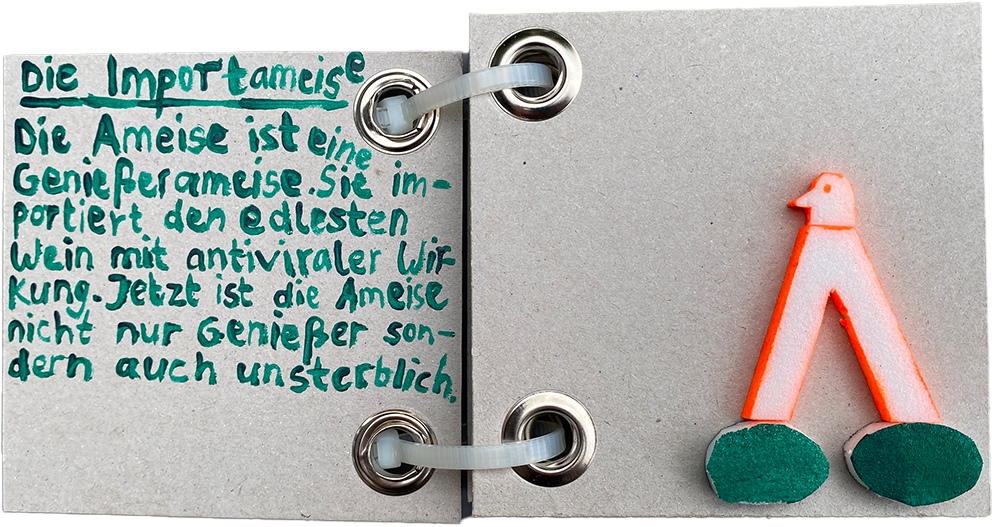 Die Importameise
Die Ameise ist eine
Genießerameise. Sie im-
portiert den edlesten
Wein mit antiviraler Wir-
kung. Jetzt ist die Ameise
nicht nur Genießer son-
dern auch unsterblich.